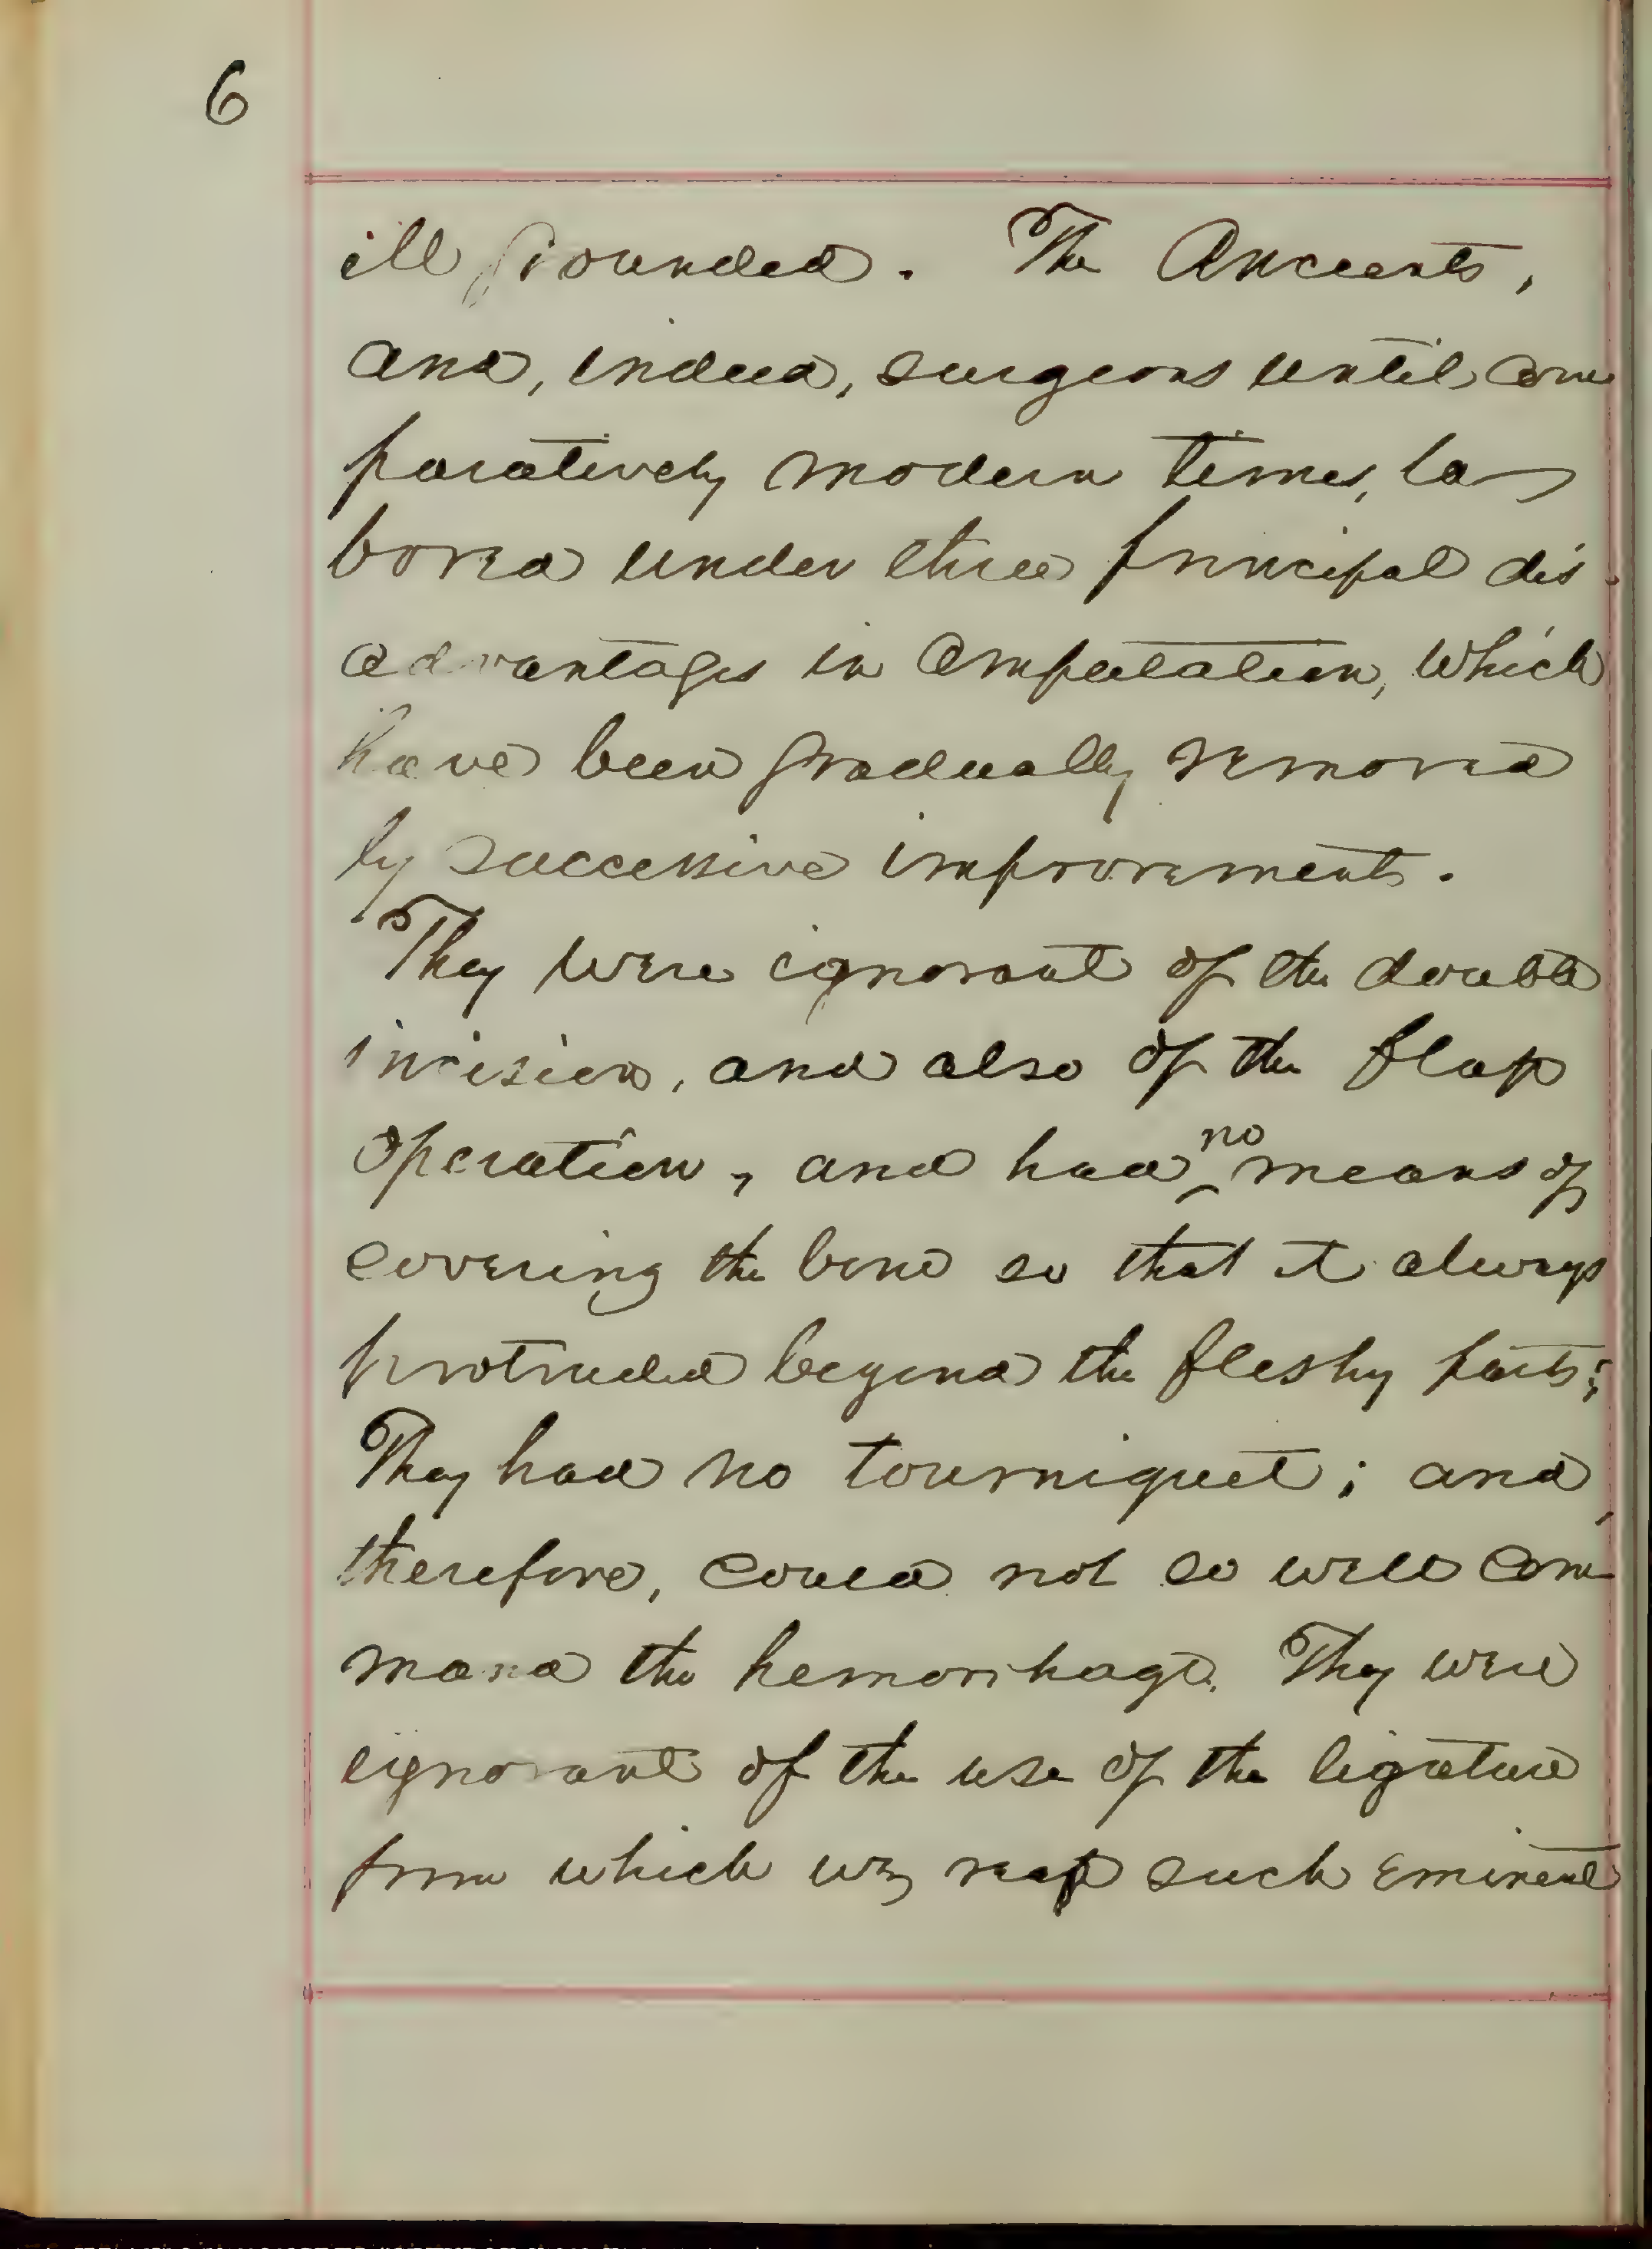 6
ill grounded. The Ancients,
and, indeed, surgeons until com
paratively modern times, la
bored under three principal dis-
advantages in amputation, which
have been gradually removed
by successive improvements.
They were ignorant of the double
incision, and also of the flap
operation, and had no means of
covering the bone so that it always
protruded beyond the fleshy parts;
They had no tourniquet; and,
therefore, could not so well com
mand the hemorrhage. They were
ignorant of the use of the ligature
from which we reap such eminent